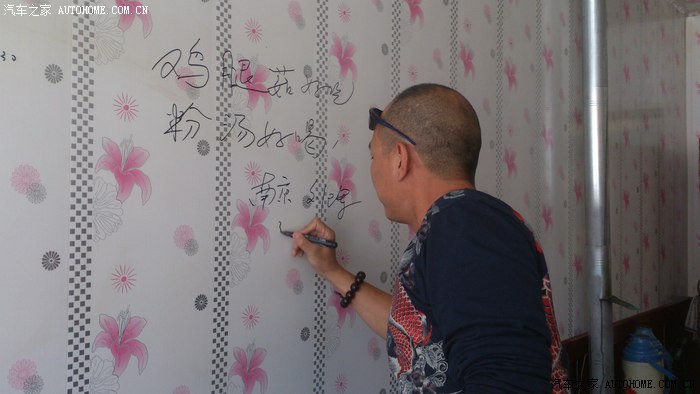 汽车之家 AUTOHOME.COM.CN
鸡腿菇好吃
粉汤好喝,
南京
汽车之家 AUTOHOME.COM.CN